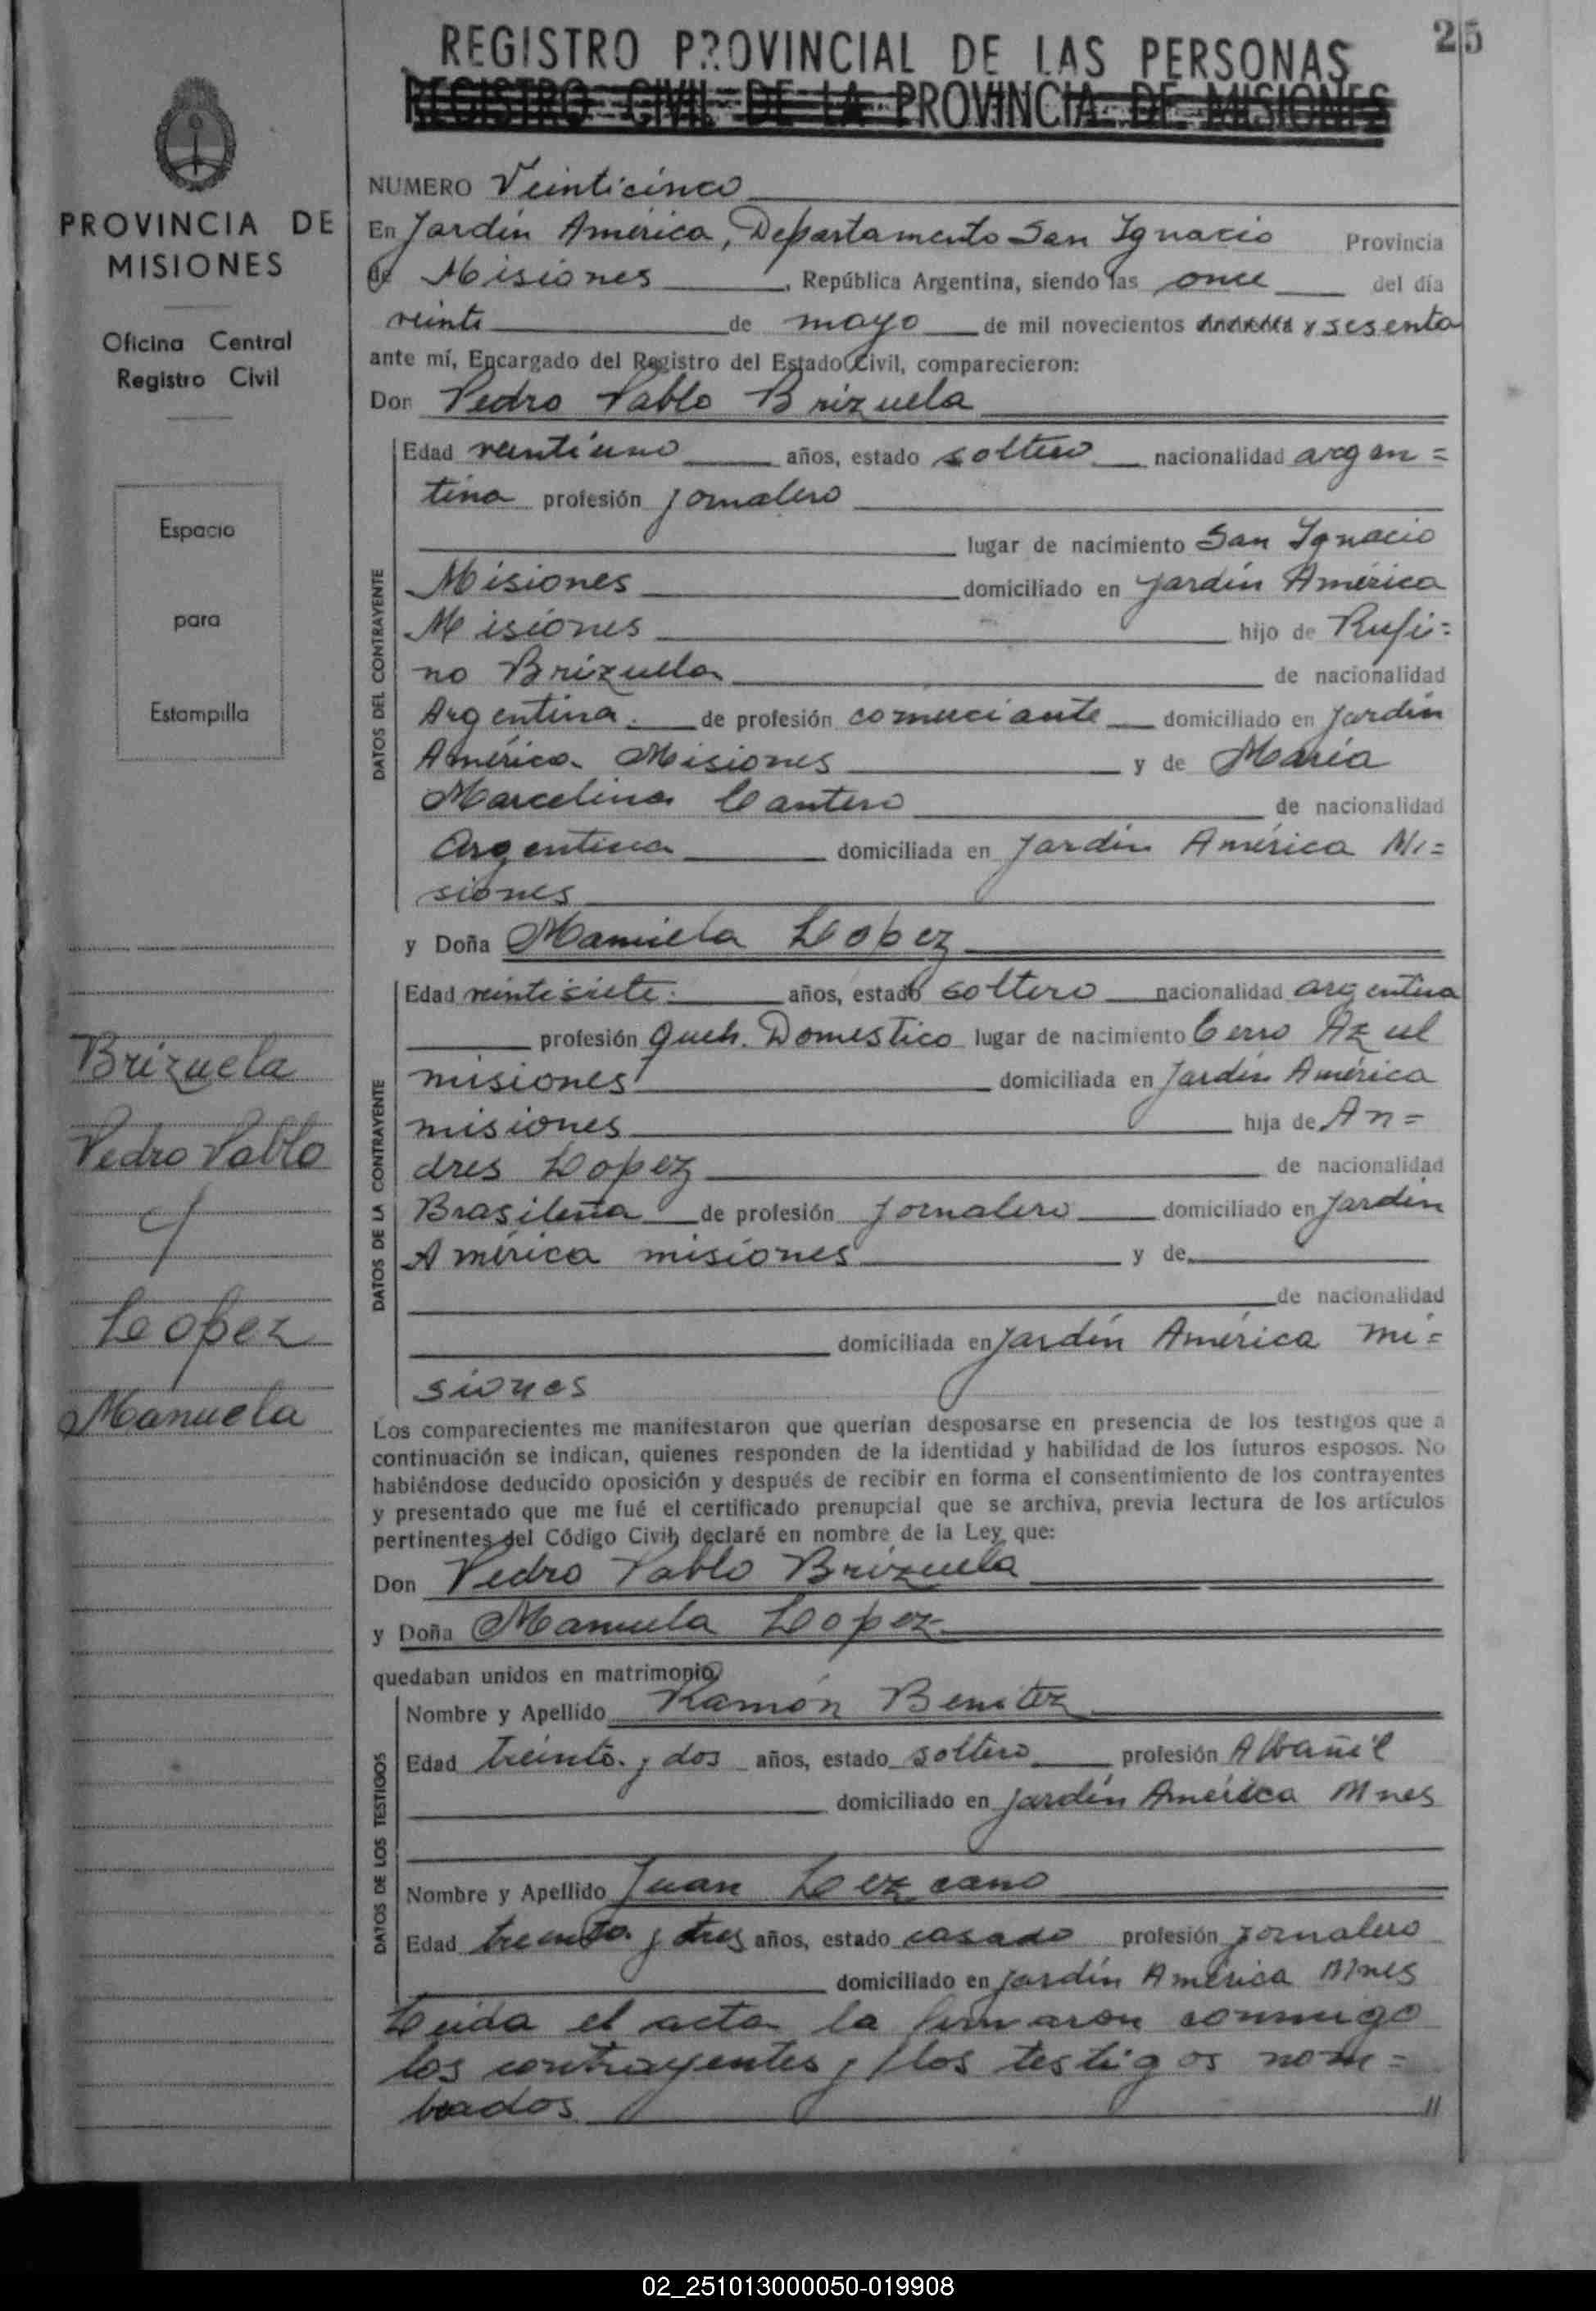 25
REGISTRO PROVINCIAL DE LAS PERSONAS
REGISTRO CIVIL DE LA PROVINCIA DE MISIONES
PROVINCIA DE
MISIONES
Oficina Central
Registro Civil
Espacio
para
Estampilla
Brizuela
Pedro Pablo
y
Lopez
Manuela
NUMERO Veinticinco
En Jardín América, Departamento San Ignacio Provincia
de Misiones, República Argentina, siendo las once del día
veinte de mayo de mil novecientos y sesenta
ante mí, Encargado del Registro del Estado Civil, comparecieron:
Don Pedro Pablo Brizuela
DATOS DEL CONTRAYENTE
Edad veintiuno años, estado soltero nacionalidad argen=
tina profesión jornalero
lugar de nacimiento San Ignacio
Misiones domiciliado en Jardín América
Misiones hijo de Rufi=
no Brizuela de nacionalidad
Argentina. de profesión comerciante domiciliado en Jardín
América Misiones y de María
Marcelina Cantero de nacionalidad
Argentina domiciliada en Jardín América Mi=
siones
y Doña Manuela Lopez
DATOS DE LA CONTRAYENTE
Edad veintisiete. años, estado soltero nacionalidad argentina
profesión Queh. Domestico lugar de nacimiento Cerro Azul
misiones domiciliada en Jardín América
misiones hija de An=
dres Lopez de nacionalidad
Brasileña de profesión Jornalero domiciliado en Jardín
América misiones y de
de nacionalidad
domiciliada en Jardín América mi=
siones
Los comparecientes me manifestaron que querían desposarse en presencia de los testigos que a
continuación se indican, quienes responden de la identidad y habilidad de los futuros esposos. No
habiéndose deducido oposición y después de recibir en forma el consentimiento de los contrayentes
y presentado que me fué el certificado prenupcial que se archiva, previa lectura de los artículos
pertinentes del Código Civil, declaré en nombre de la Ley que:
Don Pedro Pablo Brizuela
y Doña Manuela Lopez
quedaban unidos en matrimonio
DATOS DE LOS TESTIGOS
Nombre y Apellido Ramón Benitez
Edad treinta y dos años, estado soltero profesión Albañil
domiciliado en Jardín América Mnes
Nombre y Apellido Juan Lezcano
Edad treinta y tres años, estado casado profesión jornalero
domiciliado en Jardín América Mnes
Leida el acta la firmaron conmigo
los contrayentes y los testigos nom=
brados //
02_251013000050-019908